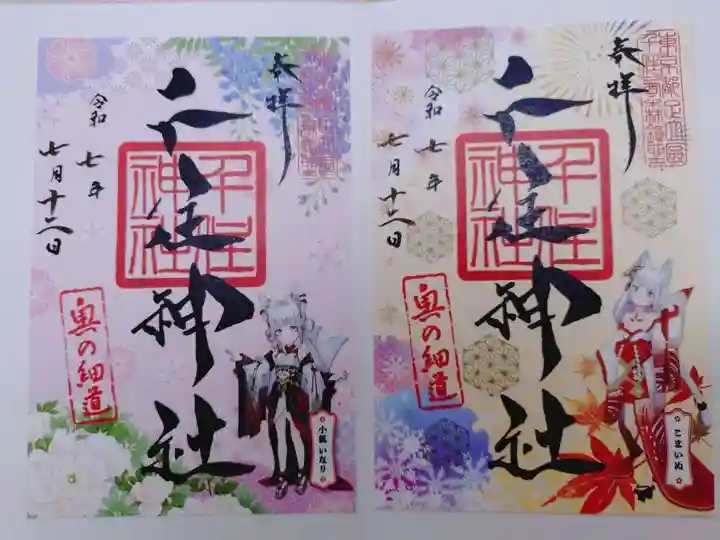 奉拝
千住神社
千住神社
令和七年
七月十二日
奥の細道
小狐いなり
奉拝
千住神社
千住神社
令和七年
七月十二日
奥の細道
こまいぬ